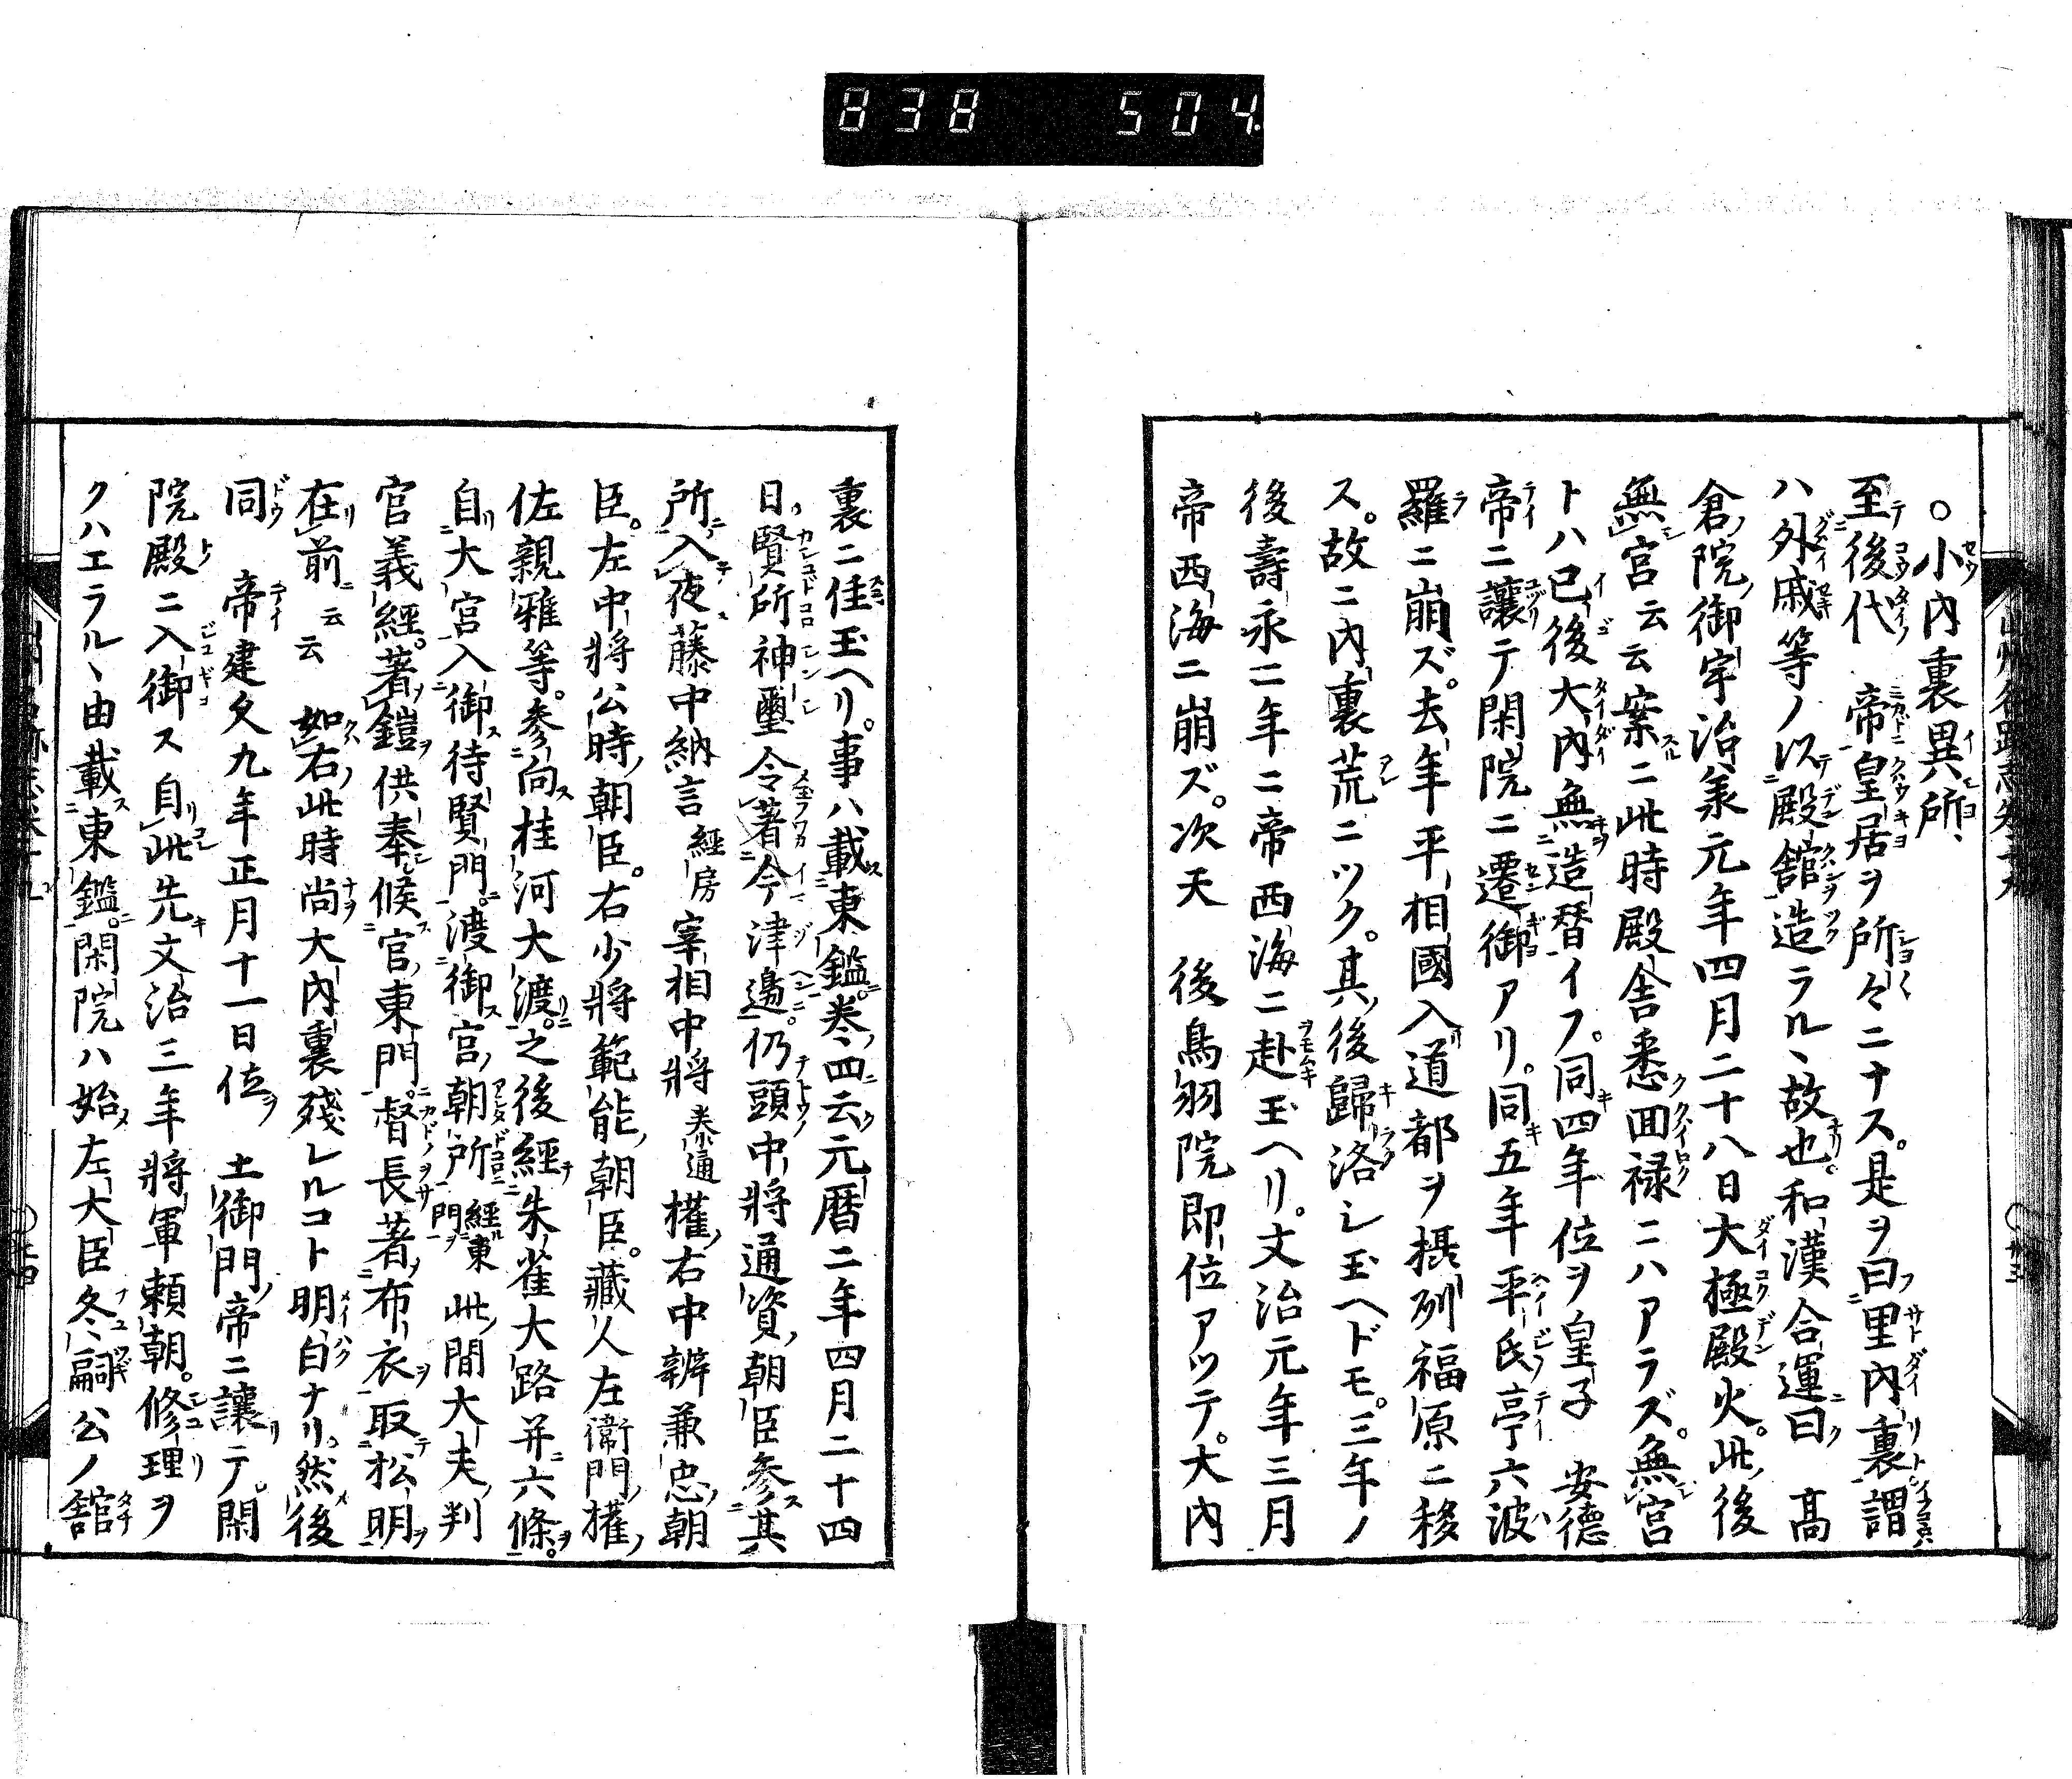 838 504
○小内裏異所
至後代 帝皇居ヲ所々ニナス。是ヲ曰里内裏謂
ハ外戚等ノ以殿舘造ラルヽ故也。和漢合運曰 高
倉院御宇治承元年四月二十八日大極殿火。此後
無宮云云案ニ此時殿舎悉囬禄ニハアラズ。無宮
トハ已後大内無造替イフ。同四年位ヲ皇子 安徳
帝ニ讓テ閑院ニ遷御アリ。同五年平氏亭六波
羅ニ崩ズ。去年平相國入道都ヲ摂州福原ニ移
ス。故ニ内裏荒ニツク。其後歸洛シ玉ヘドモ。三年ノ
後壽永二年ニ帝西海ニ赴玉ヘリ。文治元年三月
帝西海ニ崩ズ。次天 後鳥羽院即位アツテ。大内
裏ニ住玉ヘリ。事ハ載東鑑。巻四云元暦二年四月二十四
日賢所神璽令著今津邊。仍頭中將通資朝臣参其
所入夜藤中納言 經房 宰相中將 泰通 權右中辨兼忠朝
臣。左中將公時朝臣。右少將範能朝臣。藏人左衛門權
佐親雅等。参向桂河大渡。之後經朱雀大路并六條。
自大宮入御待賢門。渡御官朝所 經東門 此間大夫判
官義經。著鎧供奉候官東門。督長著布衣取松明
在前云云 如右此時尚大内裏殘レルコト明白ナリ。然後
同 帝建久九年正月十一日位 土御門帝ニ讓テ。閑
院殿ニ入御ス自此先文治三年將軍賴朝。修理ヲ
クハエラルヽ由載東鑑。閑院ハ始左大臣冬嗣公ノ舘